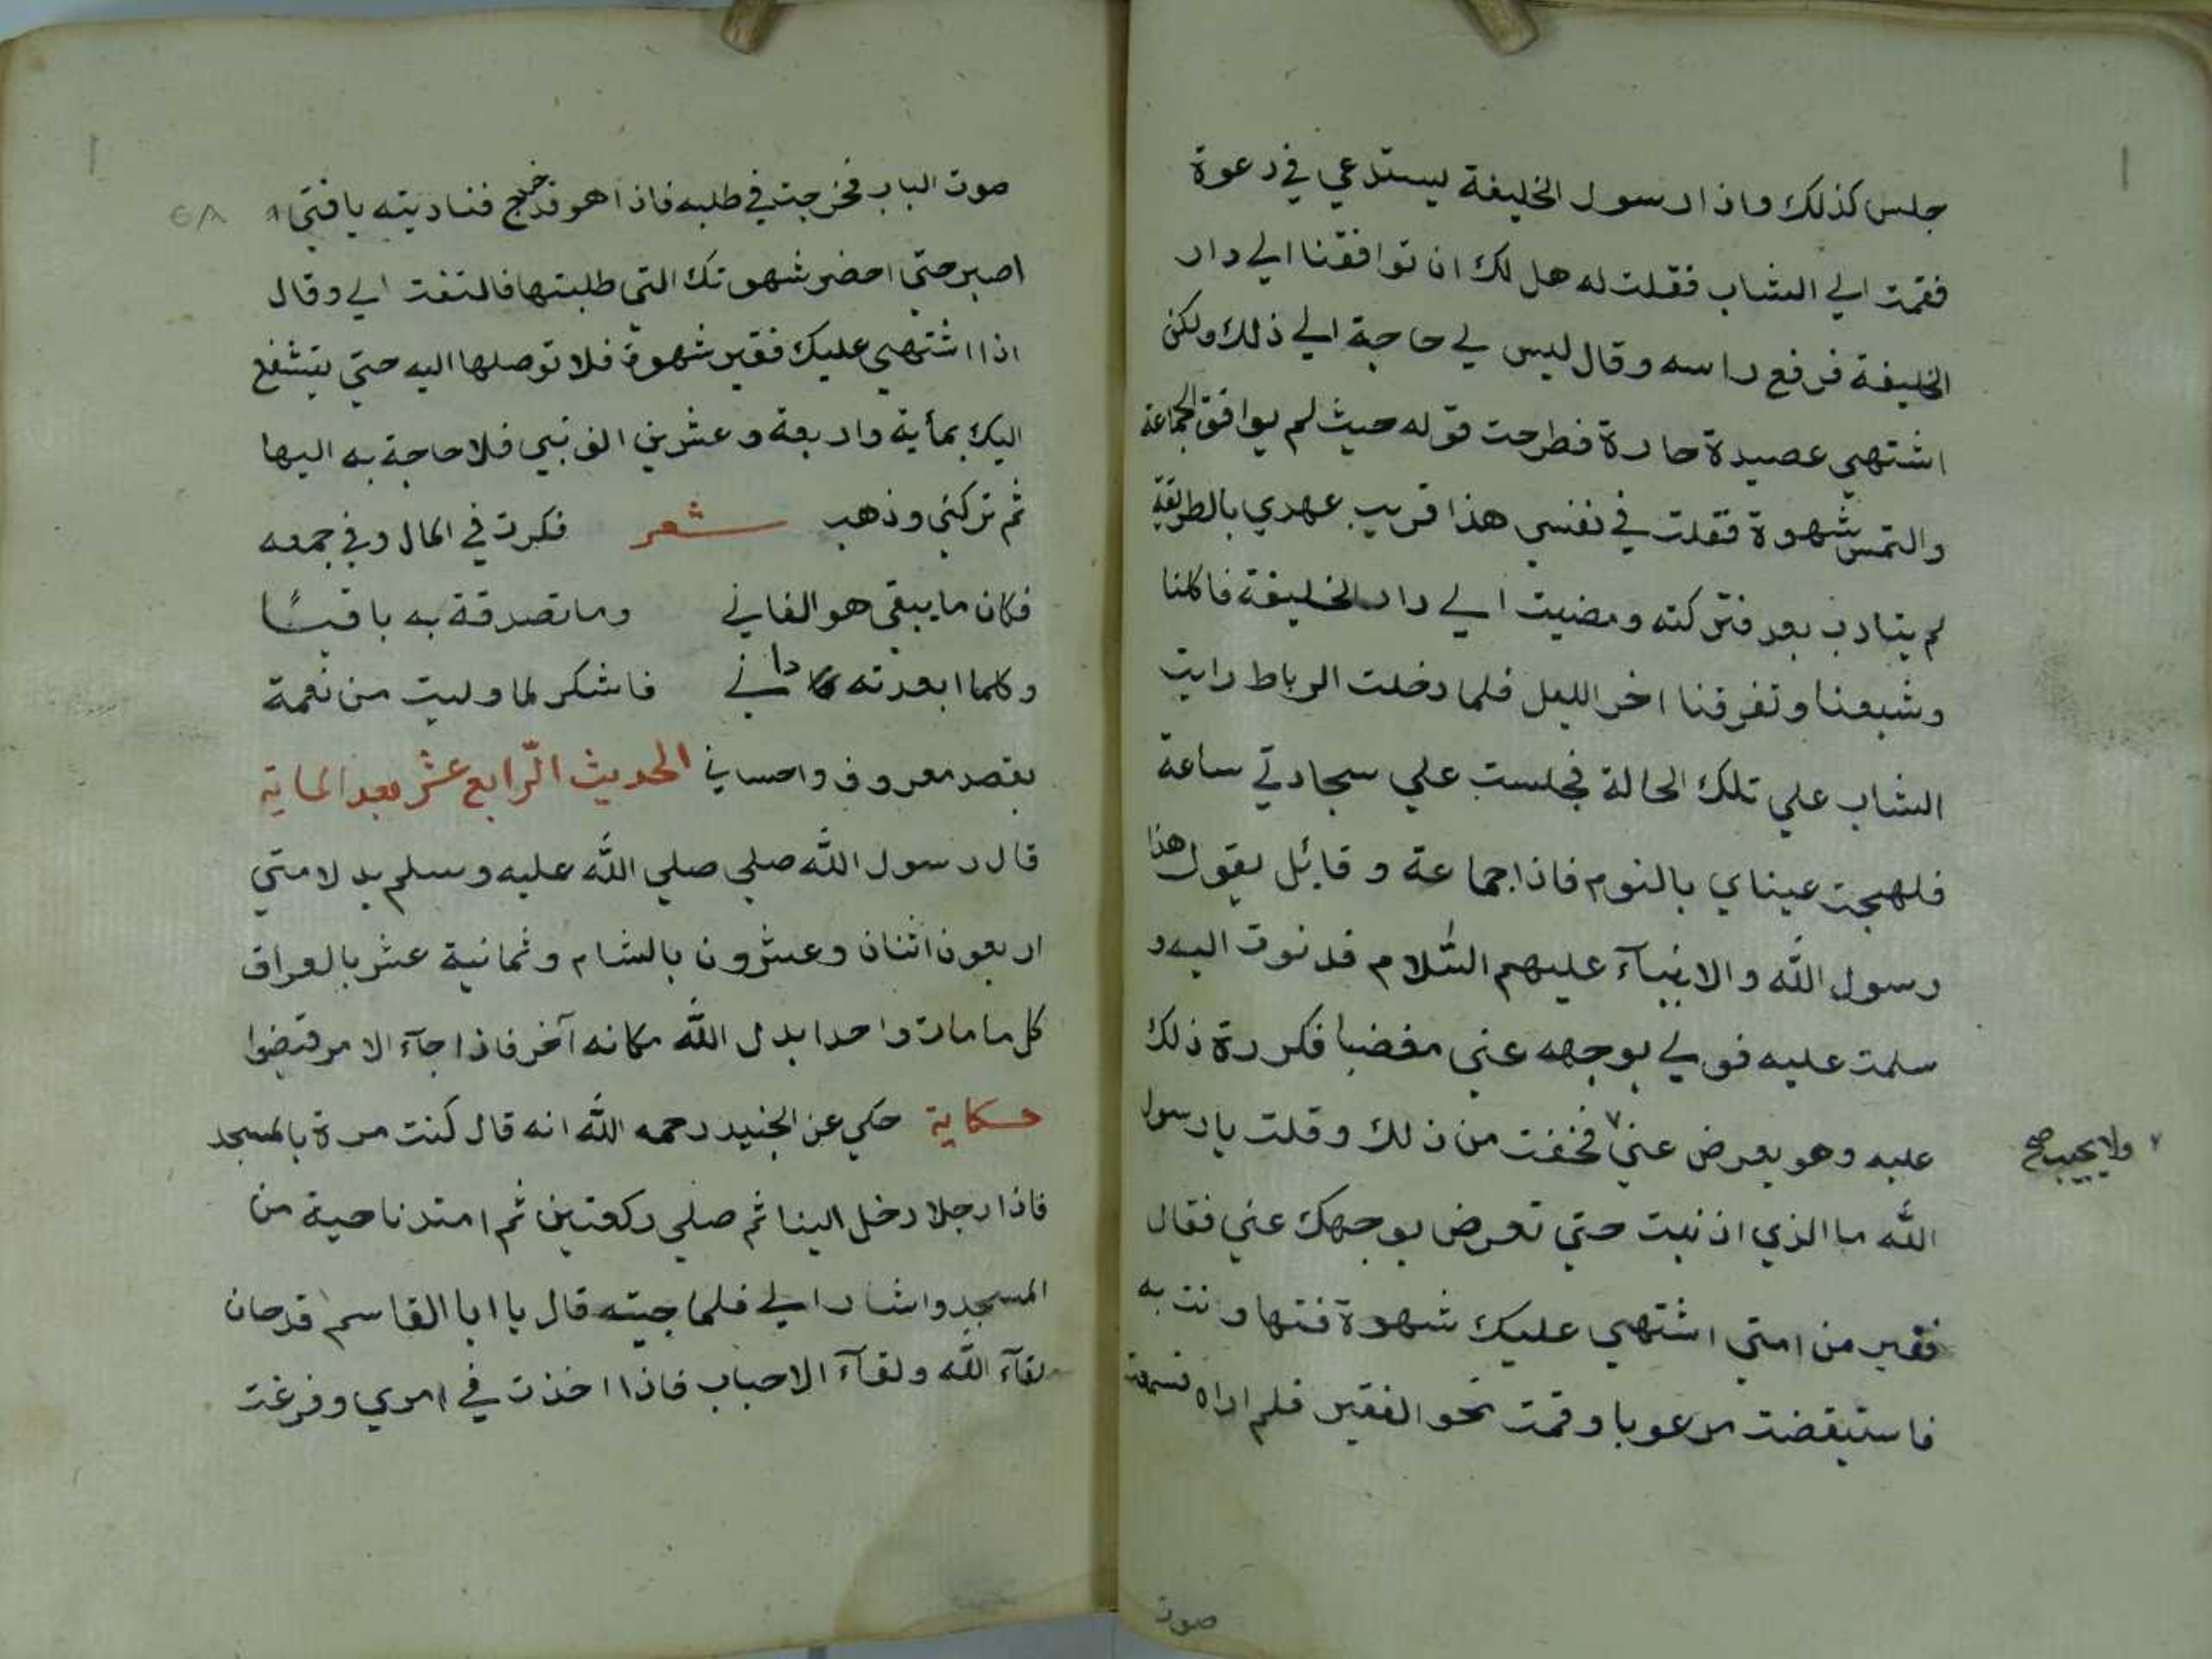 جلس كذلك واذا رسول الخليفة يستدعي في دعوة
فقمت الي الشاب فقلت له هل لك ان توافقنا الي دار
الخليفة فرفع راسه وقال ليس لي حاجة الي ذلك ولكن
اشتهي عصيدة حارة فطرحت قوله حيث لم يوافق الجماعة
والتمس شهوة فقلت في نفسي هذا قريب عهدي بالطريقة
لم يتادب بعد فتركته ومضيت الي دار الخليفة فاكلنا
وشبعنا وتفرقنا اخر الليل فلما دخلت الرباط رايت
الشاب علي تلك الحالة فجلست علي سجادتي ساعة
فلهجت عيناي بالنوم فاذا جماعة وقايل يقول هذا
رسول الله والانبيآء عليهم السّلام فدنوت اليه و
سلمت عليه فولي بوجهه عني مغضبا فكررة ذلك
عليه وهو يعرض عني٧ فخفت من ذلك وقلت يا رسول
٧ ولا يجيب صح
الله ما الذي اذنبت حتي تعرض بوجهك عني فقال
فقير من امتي اشتهي عليك شهوة فتهاونت به
فاستيقضت مرعوبا وقمت نحو الفقير فلم اراه فسمعت
صوت
صوت الباب فخرجت في طلبه فاذا هو قد خرج فناديته يا فتي
٥٨
اصبر حتي احضر شهوتك التي طلبتها فالتفت الي وقال
اذا اشتهي عليك فقير شهوة فلا توصلها اليه حتي يتشفع
اليك بمأية واربعة وعشرين الف نبي فلا حاجة به اليها
ثم تركني وذهب شعر فكرت في المال وفي جمعه
فكان ما يبقي هو الفاني وما تصدقة به باقيًا
وكلما ابعدته داني فاشكر لما وليت من نعمة
بقصد معروف واحساني الحديث الرّابع عشر بعد الماية
قال رسول الله صلي صلي الله عليه وسلم بدلا متي
اربعون اثنان وعشرون بالشام وثمانية عشر بالعراق
كل ما مات واحدا بدل الله مكانه آخر فاذا جآء الامر قبضوا
حكاية حكي عن الجنيد رحمه الله انه قال كنت مرة بالمسجد
فاذا رجلا دخل الينا ثم صلي ركعتين ثم امتد ناحية من
المسجد واشار الي فلما جيته قال يا ابا القاسم قد حان
لقآء الله ولقآء الاحباب فاذا اخذت في امري وفرغت